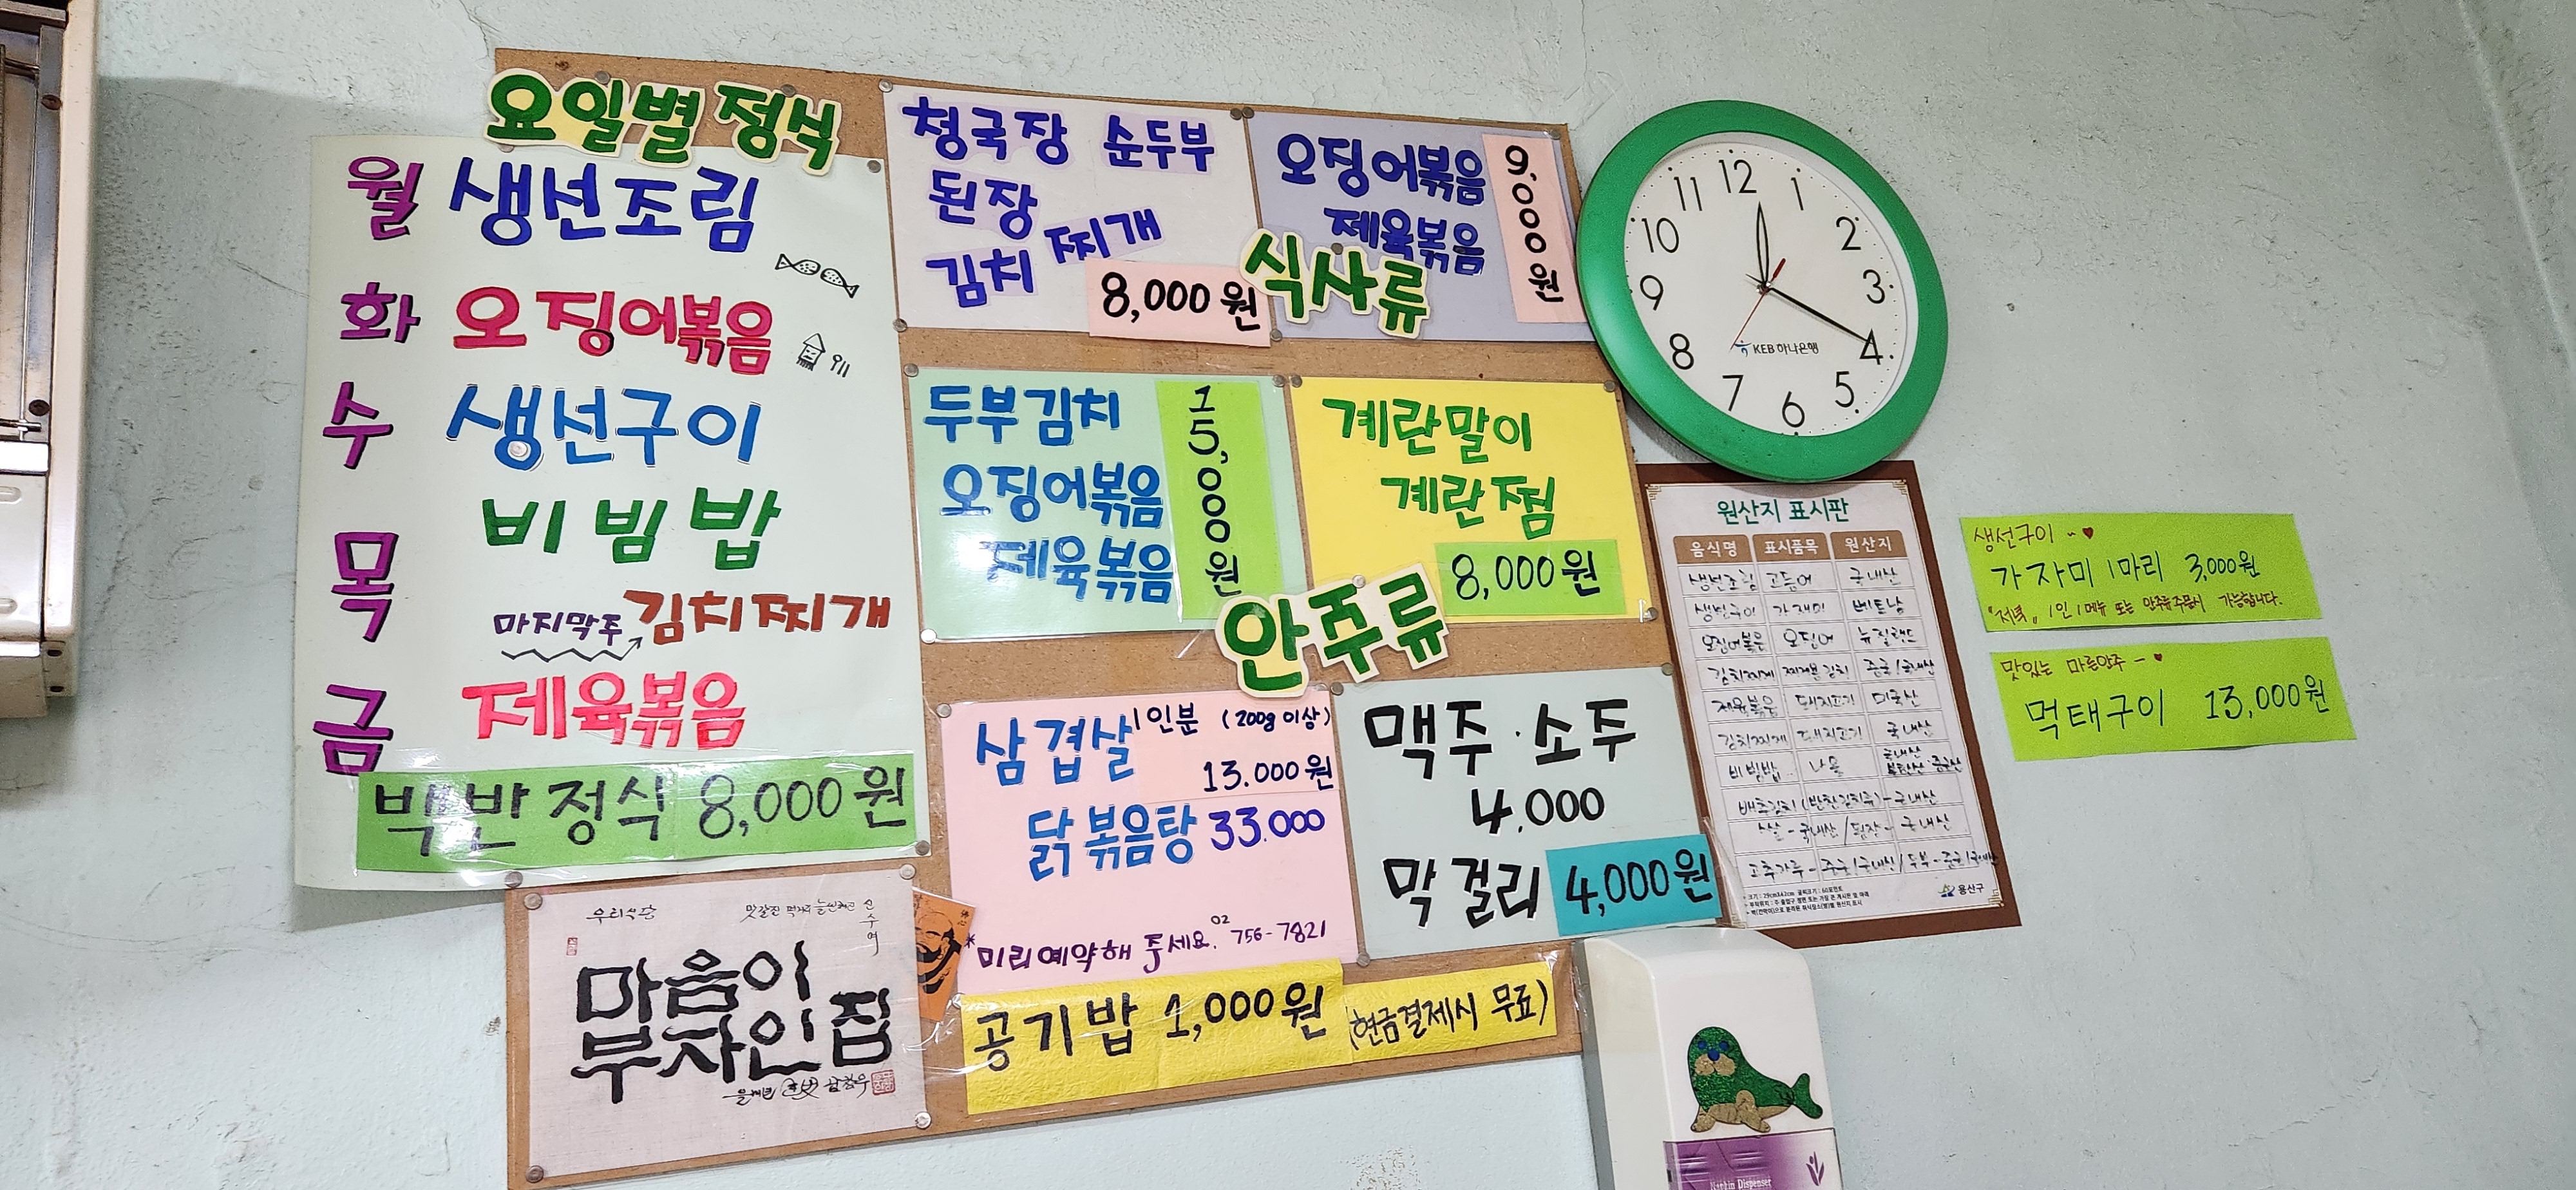 요일별 정식
월 생선조림
화 오징어볶음
수 생선구이
목 비빔밥
마지막주 김치찌개
금 제육볶음
백반정식 8,000원
청국장 순두부
된장
김치 찌개
8,000원
오징어볶음
제육볶음
9,000원
식사류
두부김치
오징어볶음
제육볶음
15,000원
계란말이
계란찜
8,000원
안주류
삼겹살 1인분 (200g 이상)
13.000원
닭볶음탕 33.000
*미리예약해 주세요. 02 756-7821
맥주·소주
4.000
막걸리 4,000원
공기밥 1,000원 (현금결제시 무료)
우리식당
마음이
부자인 집
12 1 2 3 4 5 6 7 8 9 10 11
KEB 하나은행
원산지 표시판
음식명 표시품목 원산지
생선조림 고등어 국내산
생선구이 가재미 베트남
오징어볶음 오징어 뉴질랜드
김치찌개 배추김치 중국/국내산
제육볶음 돼지고기 미국산
김치찌개 돼지고기 국내산
비빔밥 나물 국내산
배추김치 (반찬김치류) - 국내산
쌀 - 국내산 / 된장 - 국내산
고추가루 - 중국/국내산 / 두부 - 중국/국내산
용산구
생선구이 ~ ♥
가자미 1마리 3,000원
"저녁" 1인 1메뉴 또는 안주류주문시 가능합니다.
맛있는 마른안주 ~ ♥
먹태구이 13,000원
Napkin Dispenser